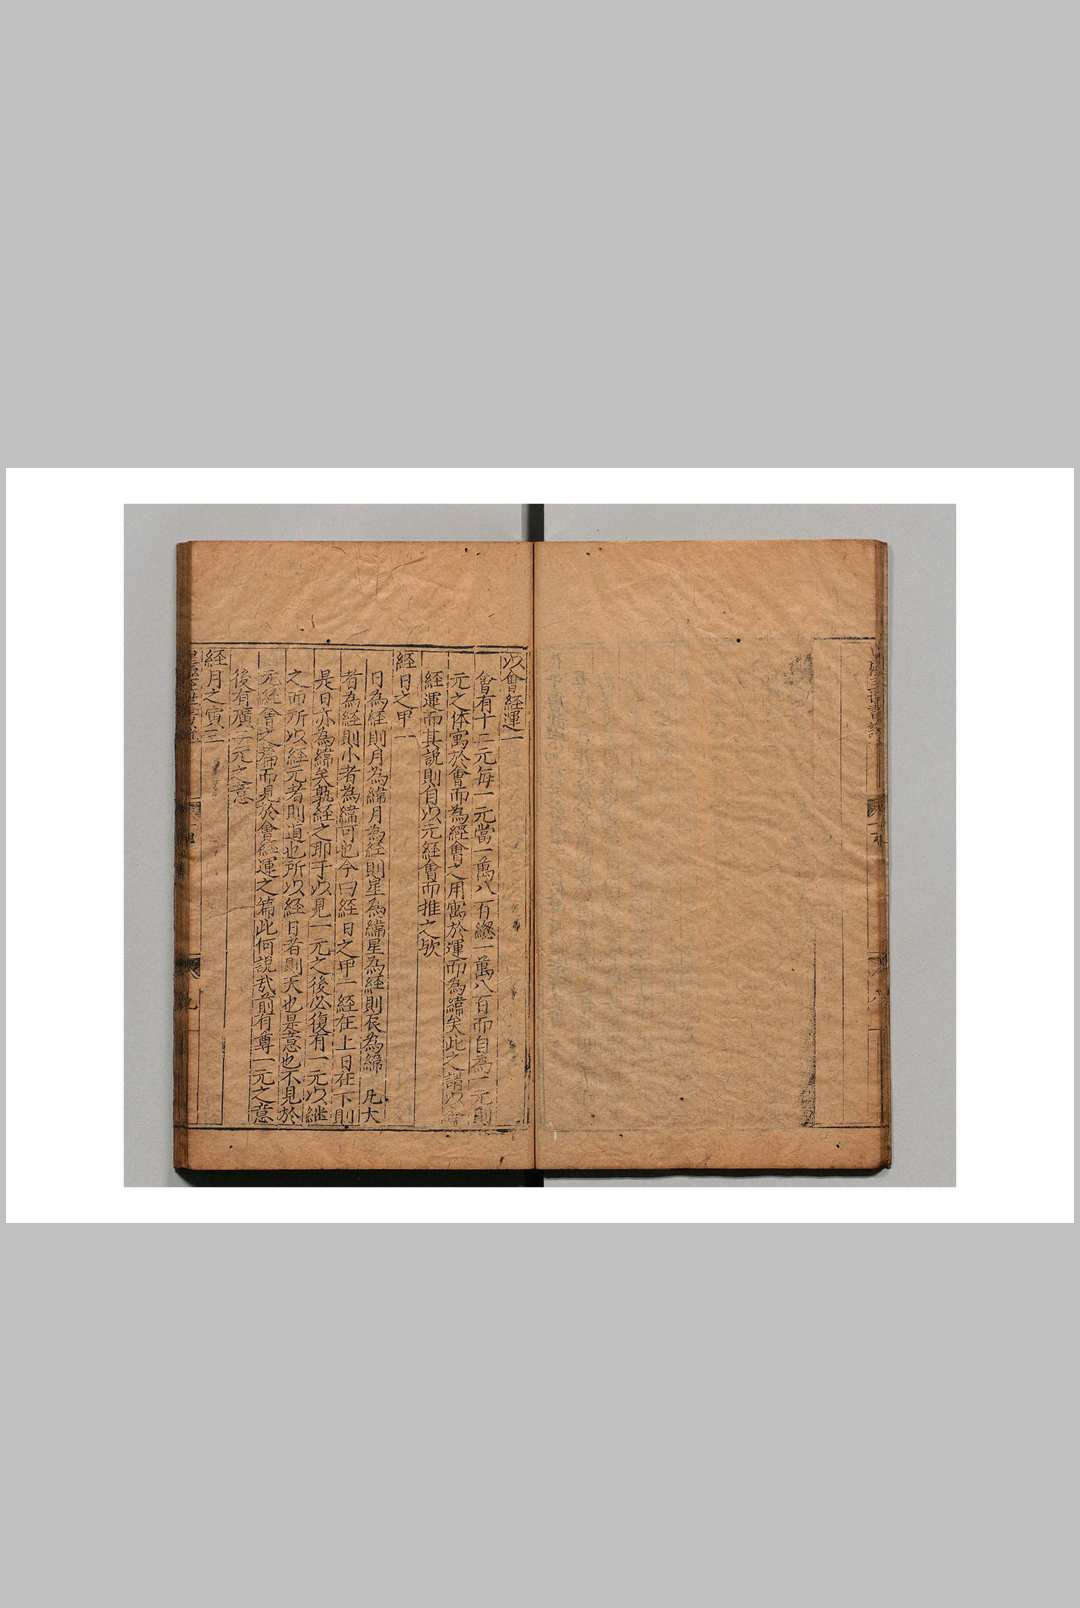 以會經運一
會有十二元每一元當一萬八百緫一萬八百而自為一元則
元之体寓於會而為經會之用寓於運而為緯矣此之謂以會
經運而其説則自以元經會而推之歟
経日之甲一
日為経則月為緯月為経則星為緯星為経則辰為緯 凡大
者為経則小者為緯可也今曰経日之甲一経在上日在下則
是日亦為緯矣孰経之耶于以見一元之後必復有一元以継
之而所以経元者則道也所以経日者則天也是意也不見於
元経會之篇而見於會経運之篇此何説㦲前有尊一元之意
後有廣一元之意
経月之寅三